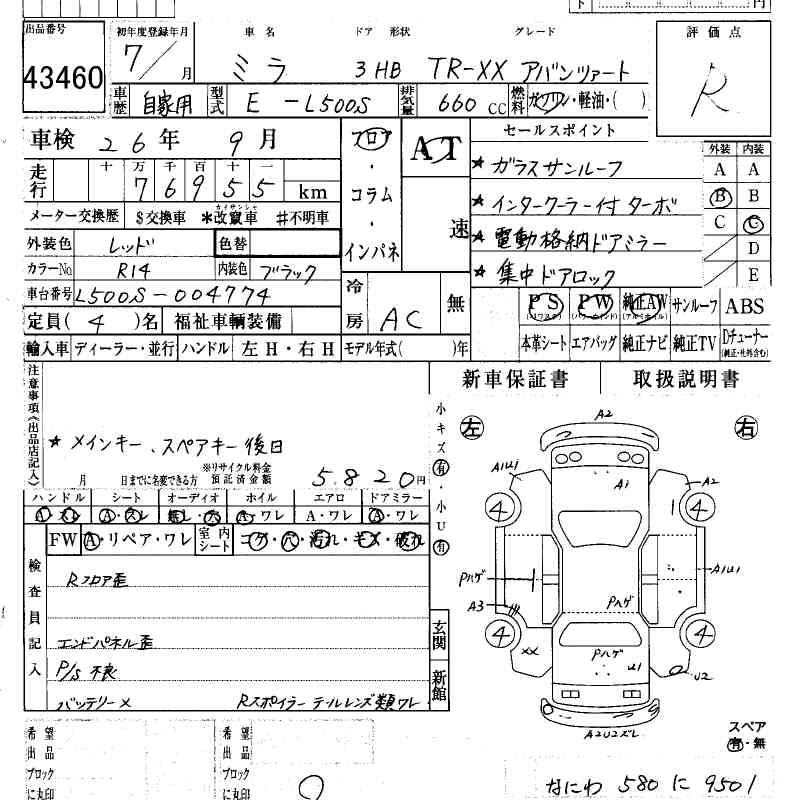 出品番号 初年度登録年月 車名 ドア 形状 グレード 評価点
43460 7/月 ミラ 3HB TR-XX アバンツァート R
車歴 自家用 型式 E-L500S 排気量 660 CC 燃料 ガソリン・軽油・( )
車検 26年 9月 フロア・コラム・インパネ AT 速
セールスポイント
★ ガラスサンルーフ
★ インタークーラー付 ターボ
★ 電動格納ドアミラー
★ 集中ドアロック
外装 内装
A A
B B
C C
D
E
走行 十 万 千 百 十 一
76955 km
メーター交換歴 $交換車 *改竄車 #不明車
外装色 レッド 色替
カラーNo R14 内装色 ブラック
車台番号 L500S-004774
冷房 AC 無
定員( 4 )名 福祉車輌装備
輸入車 ディーラー・並行 ハンドル 左H・右H モデル年式( )年
PS PW 純正AW サンルーフ ABS
(パワステ) (パワーウインド) (アルミホイル)
本革シート エアバッグ 純正ナビ 純正TV Dチューナー
(純正・社外含む)
新車保証書 取扱説明書
注意事項(出品店記入)
★ メインキー、スペアキー後日
月 日までに名変できる方 ※リサイクル料金預託済金額 5,820円
小キズ(有)・小U(有)
ハンドル シート オーディオ ホイル エアロ ドアミラー
A・スレ A・スレ 無し・穴 A・ワレ A・ワレ A・ワレ
FW A・リペア・ワレ 室内シート コゲ・穴・汚れ・キズ・破れ
検査員記入
Rフロア歪
エンドパネル歪
P/S不良
バッテリー× Rスポイラー テールレンズ類ワレ
玄関
新館
左 右
A2
A1U1 A1 A2
4 4
Pハゲ A1U1
A3 Pハゲ
4 4
XX Pハゲ U1 U2
A2U2ズレ
スペア
有・無
希望出品ブロックに丸印
希望出品ブロックに丸印
なにわ 580 に 9501